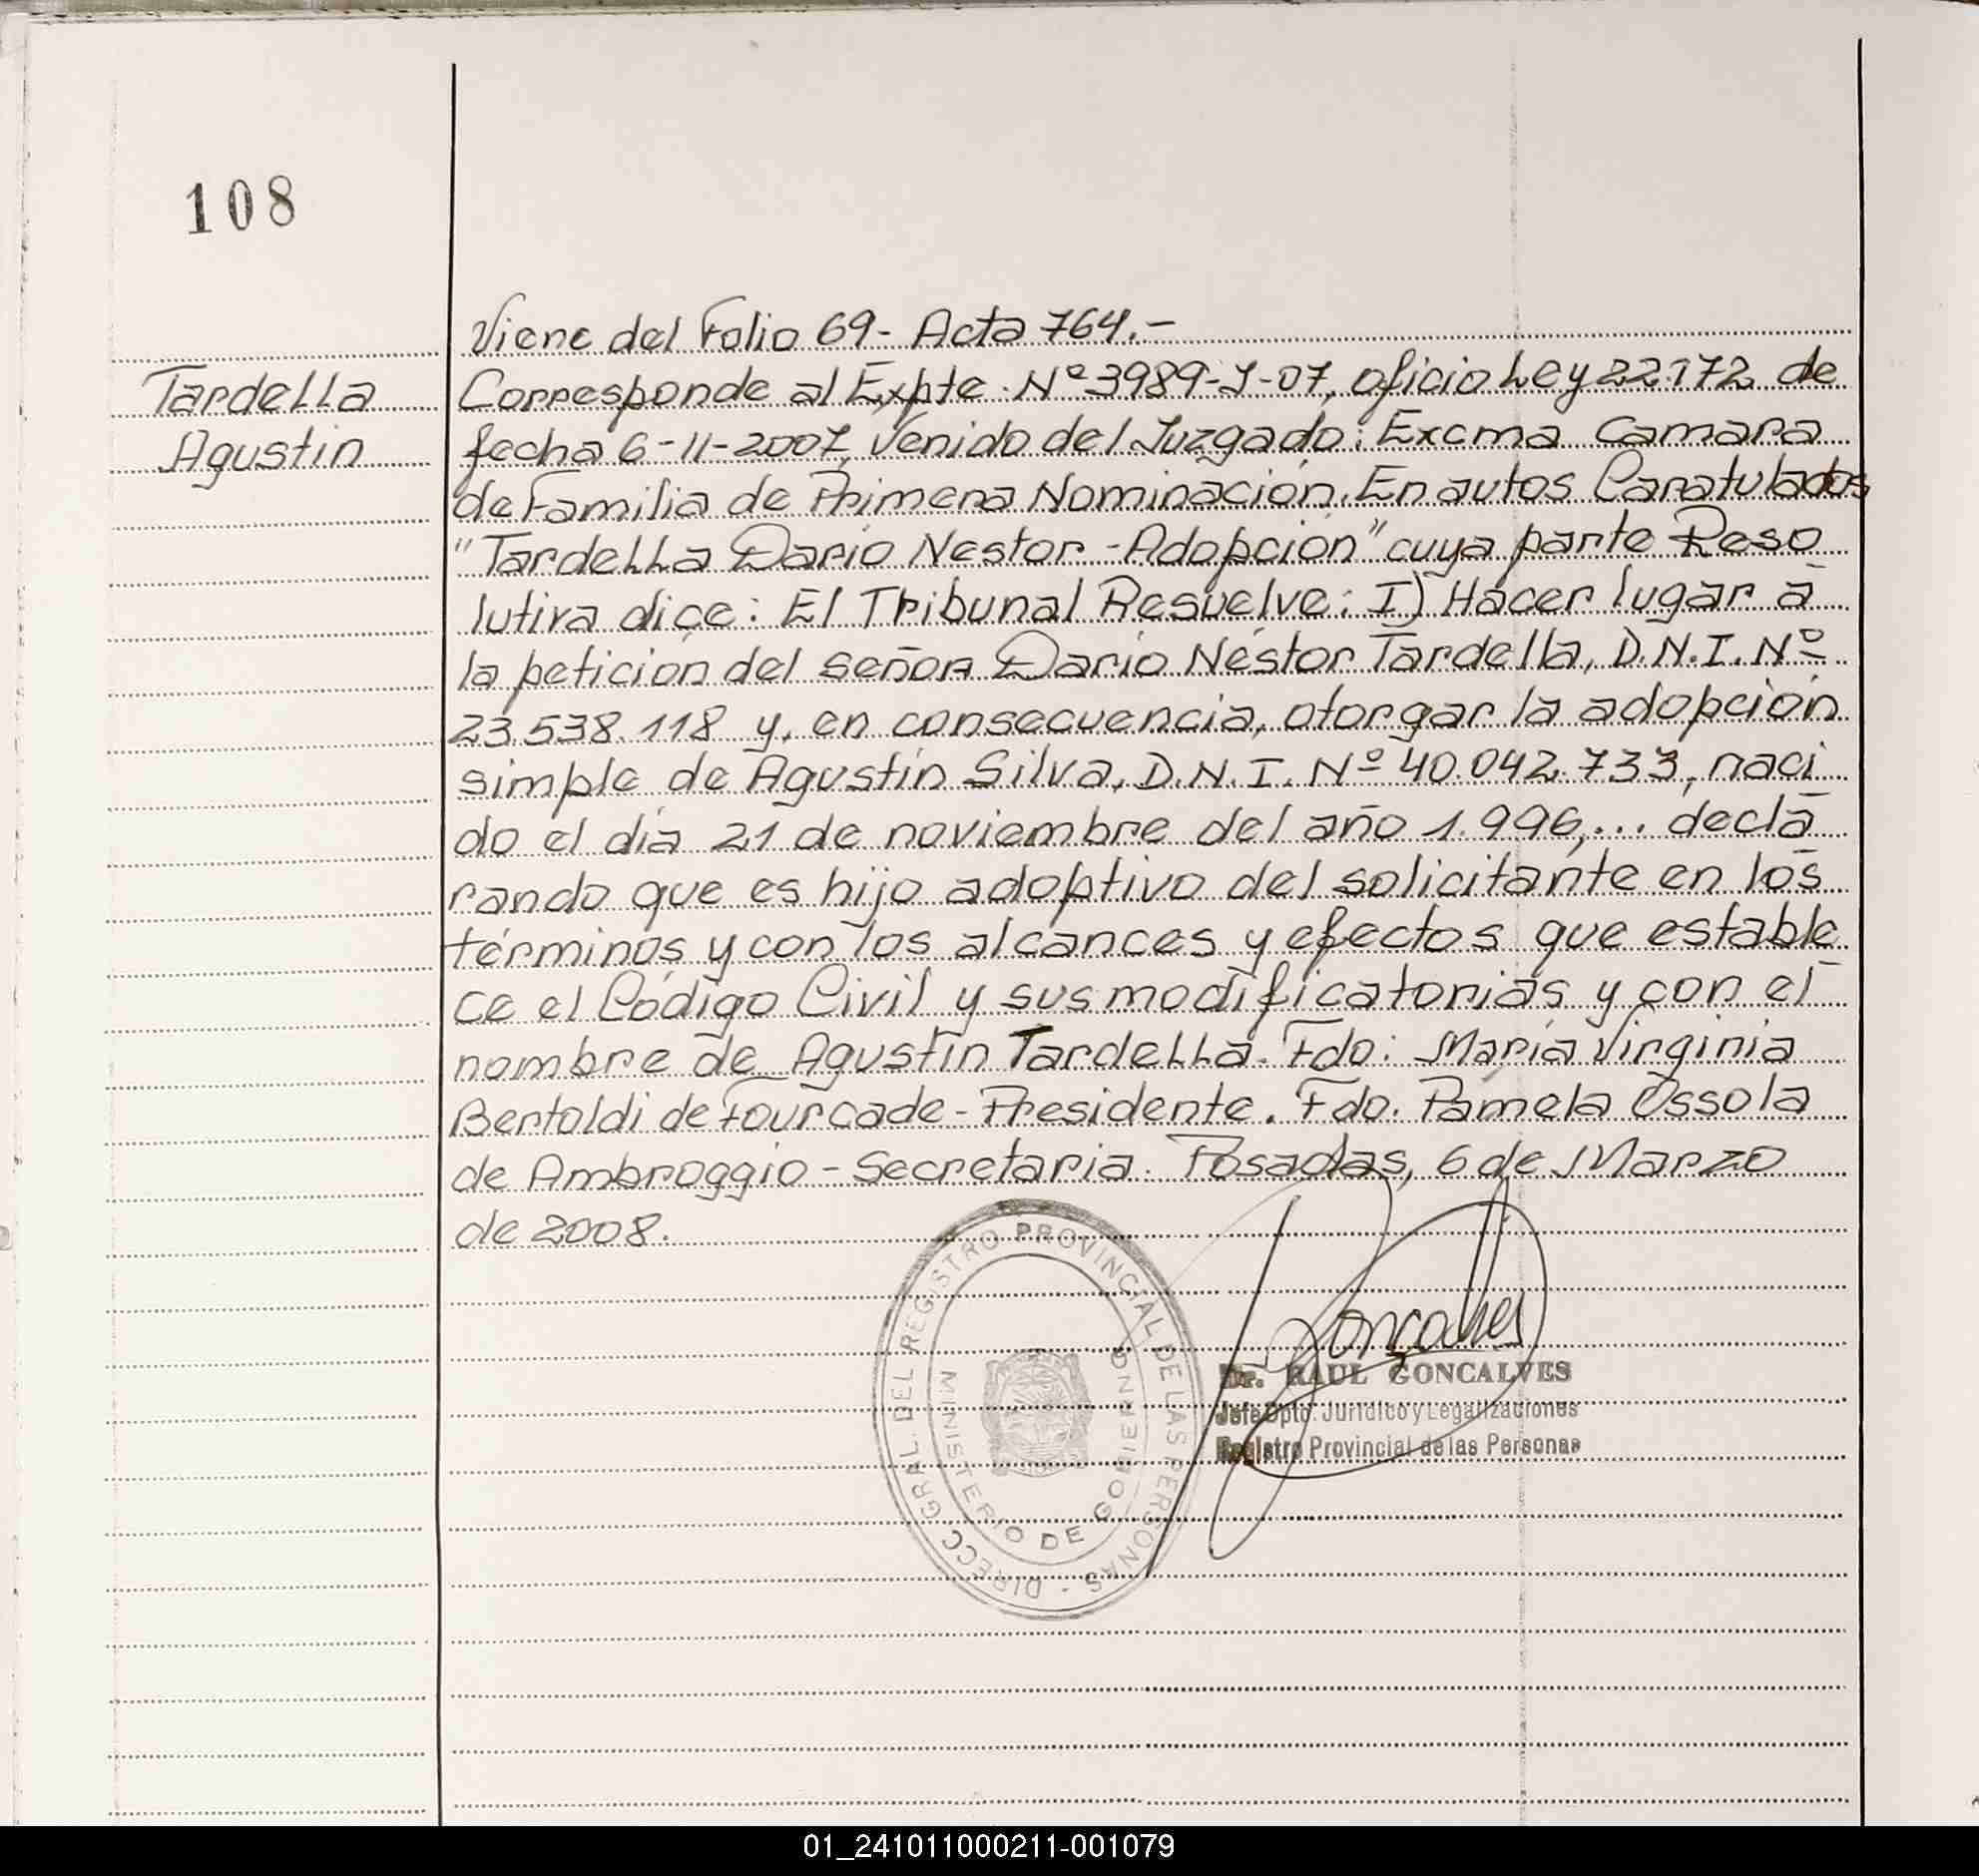 108
Viene del Folio 69- Acta 764.-
Tardella
Agustin
Corresponde al Expte. Nº 3989-J-07, oficio Ley 22172 de
fecha 6-11-2007, Venido del Juzgado: Excma Camara
de Familia de Primera Nominación. En autos Caratulados
"Tardella Dario Nestor - Adopción" cuya parte Reso
lutiva dice: El Tribunal Resuelve: I) Hacer lugar a
la petición del señor Darío Néstor Tardella, D.N.I. Nº
23.538.118 y, en consecuencia, otorgar la adopción
simple de Agustín Silva, D.N.I. Nº 40.042.733, naci
do el día 21 de noviembre del año 1.996,... decla
rando que es hijo adoptivo del solicitante en los
términos y con los alcances y efectos que estable
ce el Código Civil y sus modificatorias y con el
nombre de Agustín Tardella. Fdo: María Virginia
Bertoldi de Fourcade - Presidente. Fdo. Pamela Ossola
de Ambroggio - Secretaria. Posadas, 6 de Marzo
de 2008.
DIRECC GRAL. DEL REGISTRO PROVINCIAL DE LAS PERSONAS -
MINISTERIO DE GOBIERNO
Goncalves
Dr. RAUL GONCALVES
Jefe Dpto. Jurídico y Legalizaciones
Registro Provincial de las Personas
01_241011000211-001079